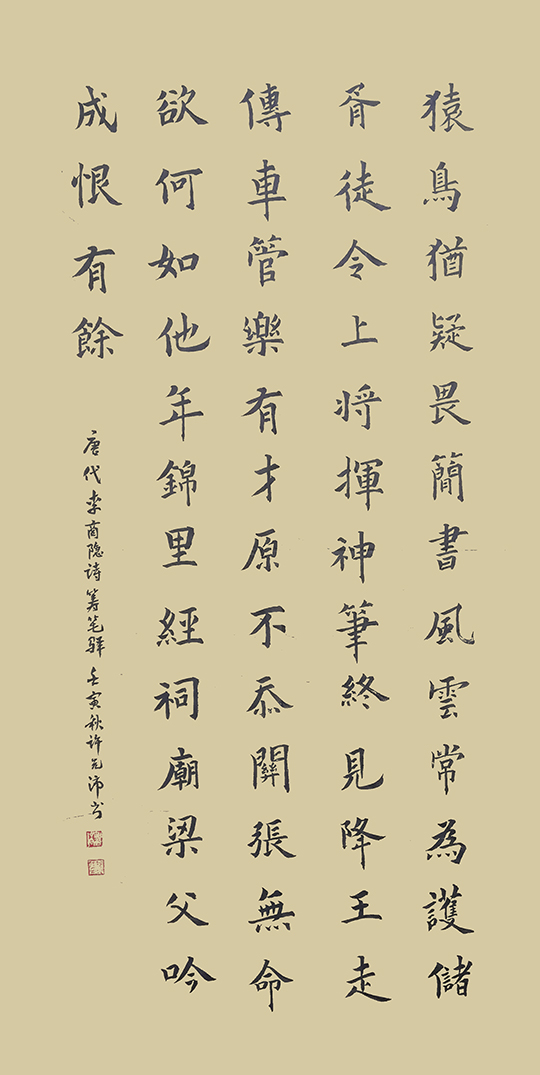 猿鳥猶疑畏簡書風雲常為護儲
胥徒令上將揮神筆終見降王走
傳車管樂有才原不忝關張無命
欲何如他年錦里經祠廟梁父吟
成恨有餘
唐代李商隐诗筹笔驿壬寅秋许元沛书